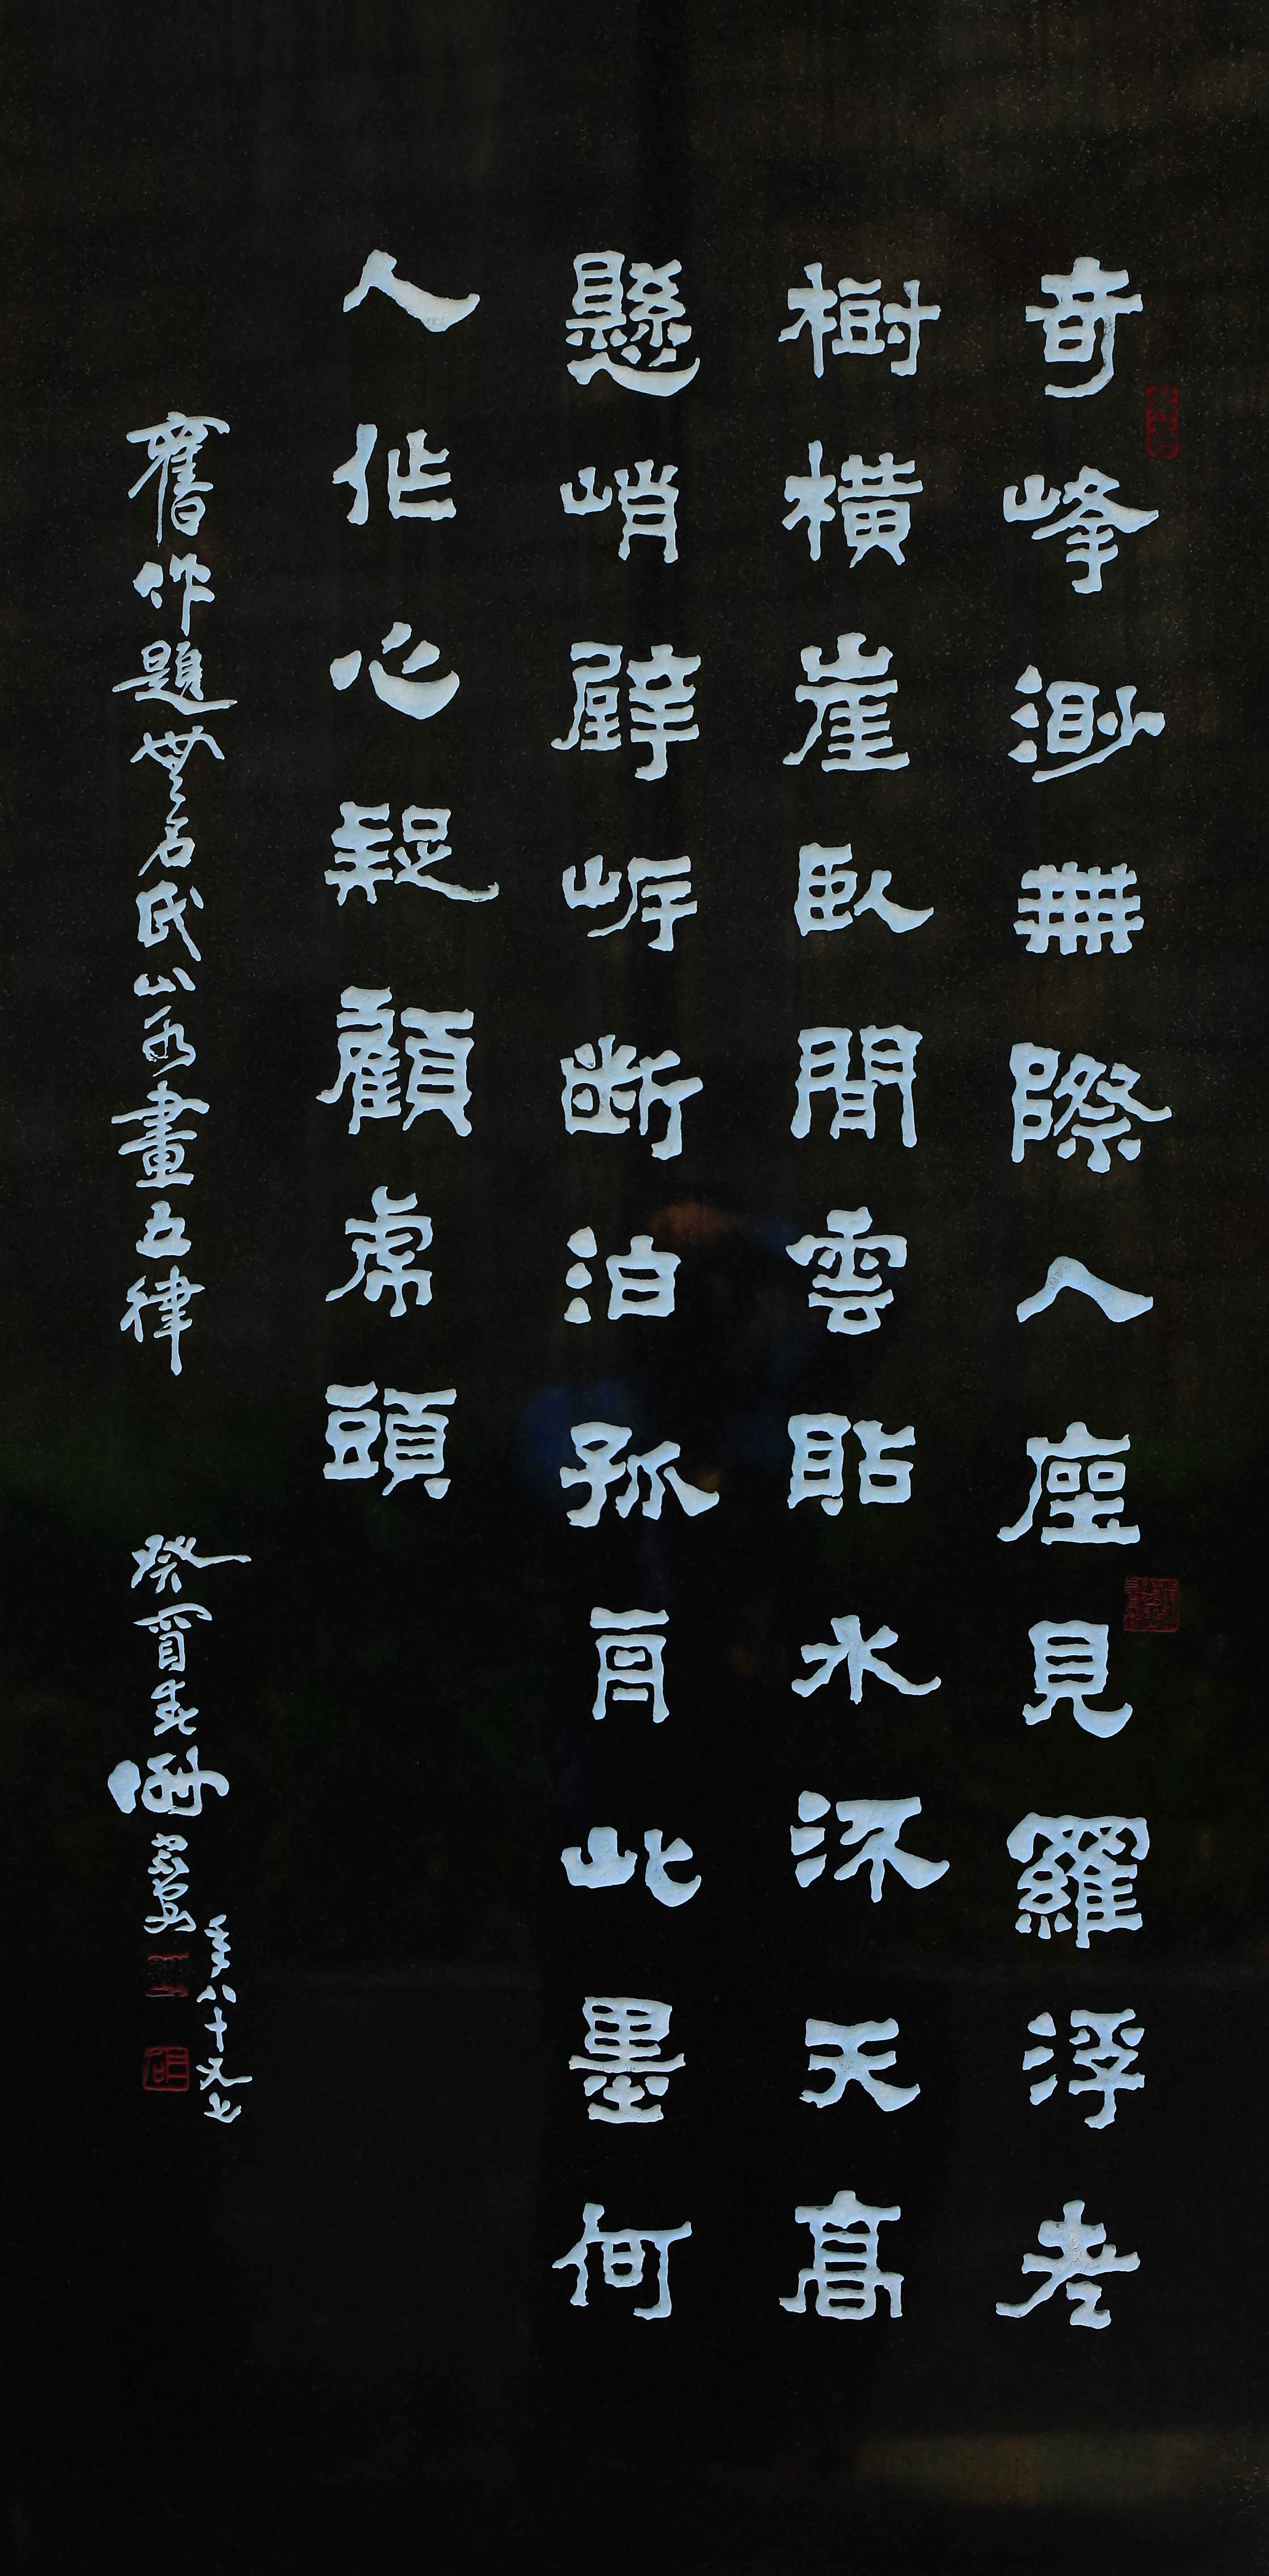 奇峰渺無際入座見羅浮老
樹橫崖臥閒雲貼水流天高
懸峭壁岸斷泊孤舟此墨何
人作心疑顧虎頭
舊作題無名氏山水畫五律 癸酉春
年八十又七